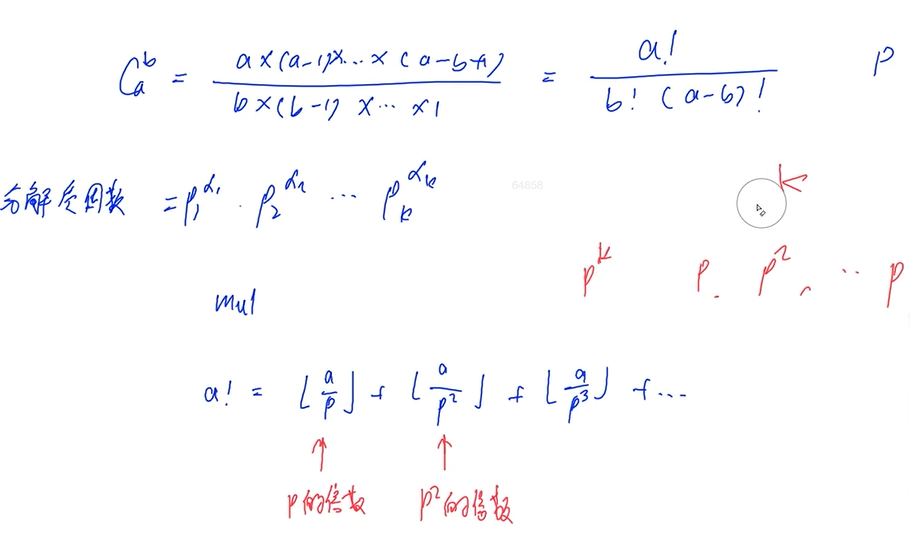 C_a^b = a×(a-1)×…×(a-b+1) / b×(b-1)×…×1 = a! / b!(a-b)! p
分解质因数 = p_1^α_1 · p_2^α_2 … p_k^α_k
64858
k
p^k p, p^2, … p
mul
a! = ⌊a/p⌋ + ⌊a/p^2⌋ + ⌊a/p^3⌋ + …
p的倍数 p^2的倍数